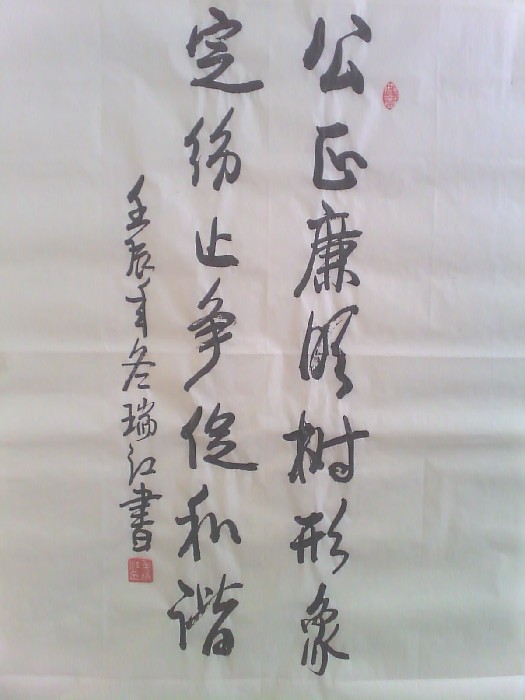 公正廉明树形象
定纷止争促和谐
壬辰年冬瑞红書